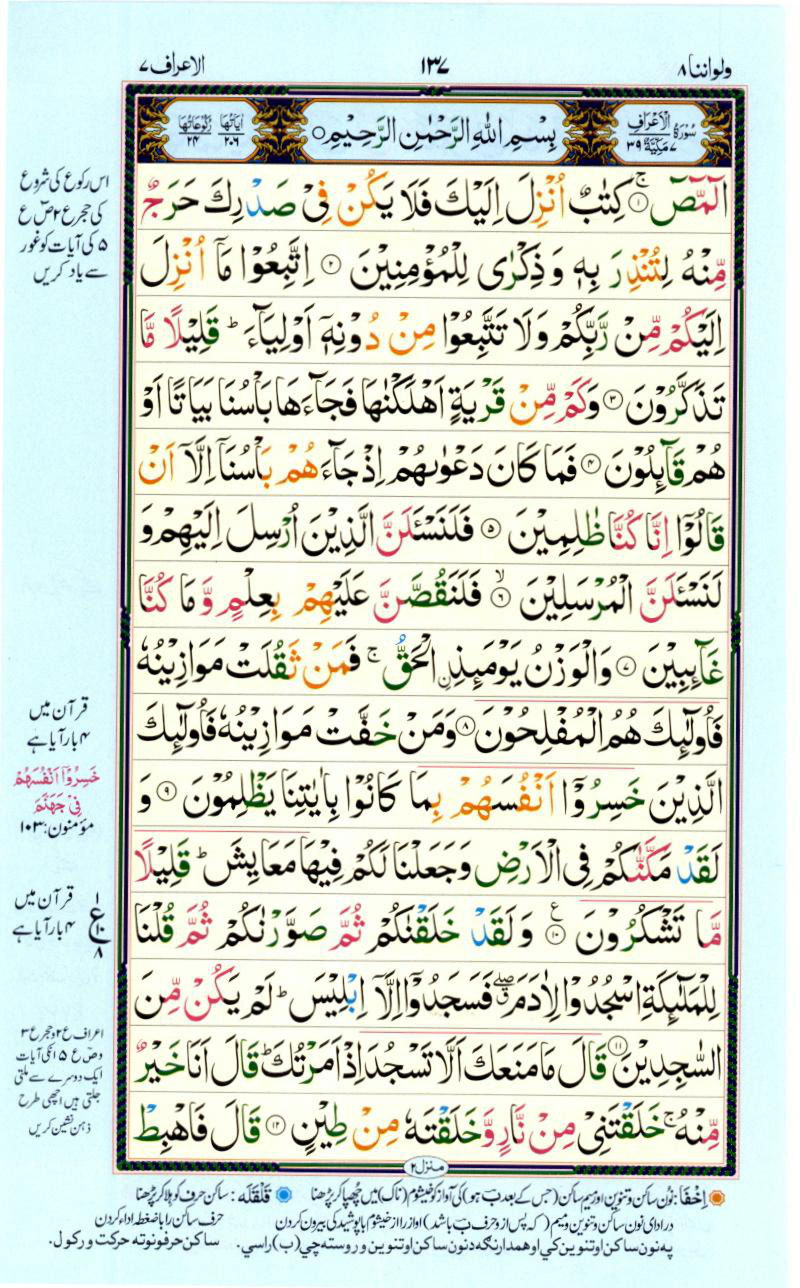 ولواننا ۸
۱۳۷
الاعراف ۷
سُوْرَةُ الْاَعْرَافِ
۷ مَكِّيَّةٌ ۳۹
بِسْمِ اللّٰهِ الرَّحْمٰنِ الرَّحِيْمِ ○
اٰيَاتُهَا ۲۰۶
رُكُوْعَاتُهَا ۲۴
الٓمّٓصٓ ۚ﴿۱﴾ كِتٰبٌ اُنْزِلَ اِلَيْكَ فَلَا يَكُنْ فِیْ صَدْرِكَ حَرَجٌ
مِّنْهُ لِتُنْذِرَ بِهٖ وَ ذِكْرٰی لِلْمُؤْمِنِيْنَ ﴿۲﴾ اِتَّبِعُوْا مَاۤ اُنْزِلَ
اِلَيْكُمْ مِّنْ رَّبِّكُمْ وَلَا تَتَّبِعُوْا مِنْ دُوْنِهٖۤ اَوْلِيَآءَ ؕ قَلِيْلًا مَّا
تَذَكَّرُوْنَ ﴿۳﴾ وَكَمْ مِّنْ قَرْيَةٍ اَهْلَكْنٰهَا فَجَآءَهَا بَاْسُنَا بَيَاتًا اَوْ
هُمْ قَآئِلُوْنَ ﴿۴﴾ فَمَا كَانَ دَعْوٰىهُمْ اِذْ جَآءَهُمْ بَاْسُنَاۤ اِلَّاۤ اَنْ
قَالُوْۤا اِنَّا كُنَّا ظٰلِمِيْنَ ﴿۵﴾ فَلَنَسْـَٔلَنَّ الَّذِيْنَ اُرْسِلَ اِلَيْهِمْ وَ
لَنَسْـَٔلَنَّ الْمُرْسَلِيْنَ ۙ﴿۶﴾ فَلَنَقُصَّنَّ عَلَيْهِمْ بِعِلْمٍ وَّ مَا كُنَّا
غَآئِبِيْنَ ﴿۷﴾ وَالْوَزْنُ يَوْمَئِذِ ِۨالْحَقُّ ۚ فَمَنْ ثَقُلَتْ مَوَازِيْنُهٗ
فَاُولٰٓئِكَ هُمُ الْمُفْلِحُوْنَ ﴿۸﴾ وَمَنْ خَفَّتْ مَوَازِيْنُهٗ فَاُولٰٓئِكَ
الَّذِيْنَ خَسِرُوْۤا اَنْفُسَهُمْ بِمَا كَانُوْا بِاٰيٰتِنَا يَظْلِمُوْنَ ﴿۹﴾ وَ
لَقَدْ مَكَّنّٰكُمْ فِی الْاَرْضِ وَجَعَلْنَا لَكُمْ فِيْهَا مَعَايِشَ ؕ قَلِيْلًا
مَّا تَشْكُرُوْنَ ﴿۱۰﴾ وَلَقَدْ خَلَقْنٰكُمْ ثُمَّ صَوَّرْنٰكُمْ ثُمَّ قُلْنَا
لِلْمَلٰٓئِكَةِ اسْجُدُوْا لِاٰدَمَ ۖۗ فَسَجَدُوْۤا اِلَّاۤ اِبْلِيْسَ ؕ لَمْ يَكُنْ مِّنَ
السّٰجِدِيْنَ ﴿۱۱﴾ قَالَ مَا مَنَعَكَ اَلَّا تَسْجُدَ اِذْ اَمَرْتُكَ ؕ قَالَ اَنَا خَيْرٌ
مِّنْهُ ۚ خَلَقْتَنِیْ مِنْ نَّارٍ وَّخَلَقْتَهٗ مِنْ طِيْنٍ ﴿۱۲﴾ قَالَ فَاهْبِطْ
اس رکوع کی شروع
کی حجر ع ۲ صٓ ع
۵ کی آیات کو غور
سے یاد کریں
قرآن میں
۴ بار آیا ہے
خَسِرُوْۤا اَنْفُسَهُمْ
فِیْ جَهَنَّمَ
مؤمنون: ۱۰۳
قرآن میں
۴ بار آیا ہے
۱
ع
۱۰
۸
اعراف ع ۲ و حجر ع ۳
وصٓ ع ۵ انکی آیات
ایک دوسرے سے ملتی
جلتی ہیں اچھی طرح
ذہن نشین کریں
منزل ۲
اِخفَا: نُون ساکن و تنوین اور میم ساکن (جس کے بعد بَ ہو) کی آواز کو خیشوم (ناک) میں چُھپا کر پڑھنا
قَلْقَلَہ: ساکن حرف کو ہلا کر پڑھنا
در ادای نون ساکن و تنوین و میم (که پس از و حرف بَ باشد) اواز را از خیشوم با پوشیدگی بیرون کردن
حرف ساکن را با ضغطہ اداء کردن
په نون ساکن او تنوین کي او همدارنگه د نون ساکن او تنوین و روسته چي (ب) راسي.
ساکن حرفو نو ته حرکت ورکول.